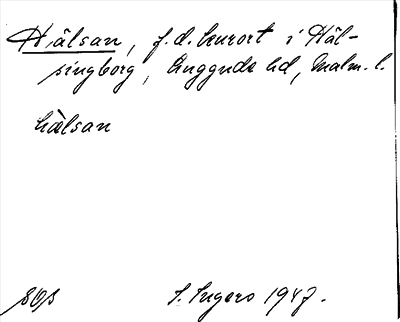 Hälsan, f.d. kurort i Häl-
singborg, Luggude hd, Malm. l.
hälsan
S. Ingers 1947.